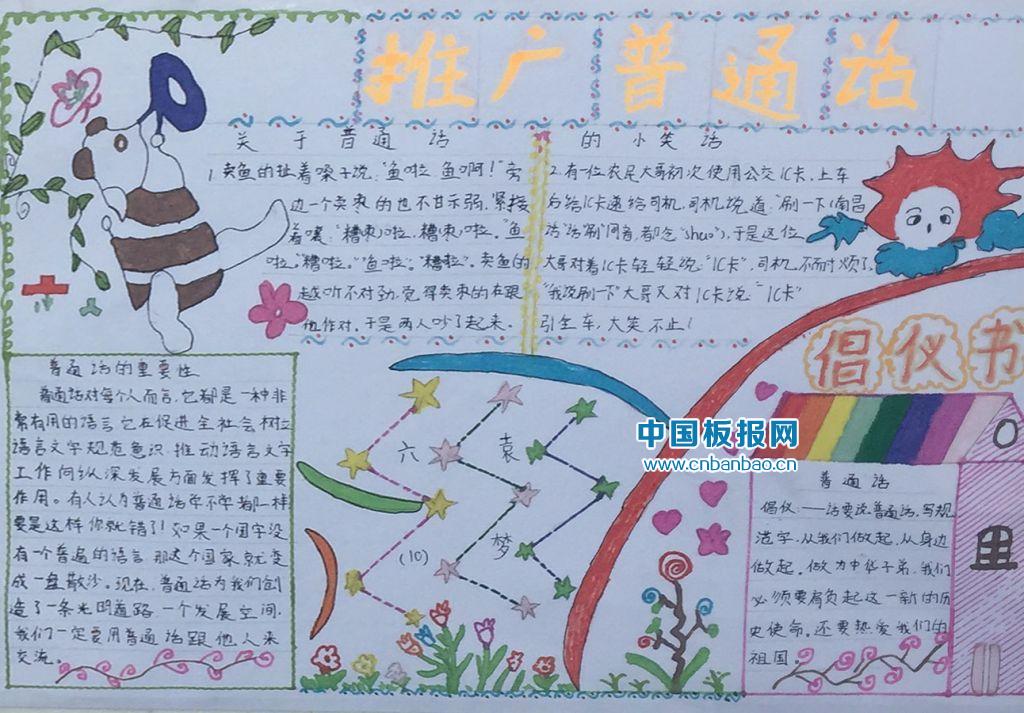 推广普通话
关于普通话的小笑话
1.卖鱼的扯着嗓子说:"鱼啦 鱼啊!"旁
边一个卖枣的也不甘示弱,紧接
着嚷:"糟枣)啦,糟枣)啦。"鱼
啦。"糟啦。""鱼啦。"糟啦"。卖鱼的
越听不对劲,觉得卖枣的在跟
他作对。于是两人吵了起来。
2.有一位农民大哥初次使用公交IC卡,上车
后给IC卡递给司机,司机说道:"刷一下(南昌
话"话"刷"同音,都念"shuo"),于是这位
大哥对着IC卡轻轻说:"IC卡",司机不耐烦了,
"我说刷一下"大哥又对IC卡说:"IC卡"
引全车,大笑不止!
倡仪书
普通话的重要性
普通话对每个人而言,它都是一种非
常有用的语言,它在促进全社会树立
语言文字规范意识,推动语言文字
工作向纵深发展方面发挥了重要
作用。有人认为普通话学不学都一样
要是这样你就错了!如果一个国字没
有一个普遍的语言,那这个国家就变
成一盘散沙。现在,普通话为我们创
造了一条光明道路,一个发展空间,
我们一定要用普通话跟他人来
交流。
六
(10)
袁
梦
中国板报网
www.cnbanbao.cn
普通话
倡仪:——话要说普通话,写规
范字,从我们做起,从身边
做起。做为中华子弟,我们
必须要肩负起这一新的历
史使命。还要热爱我们的
祖国。